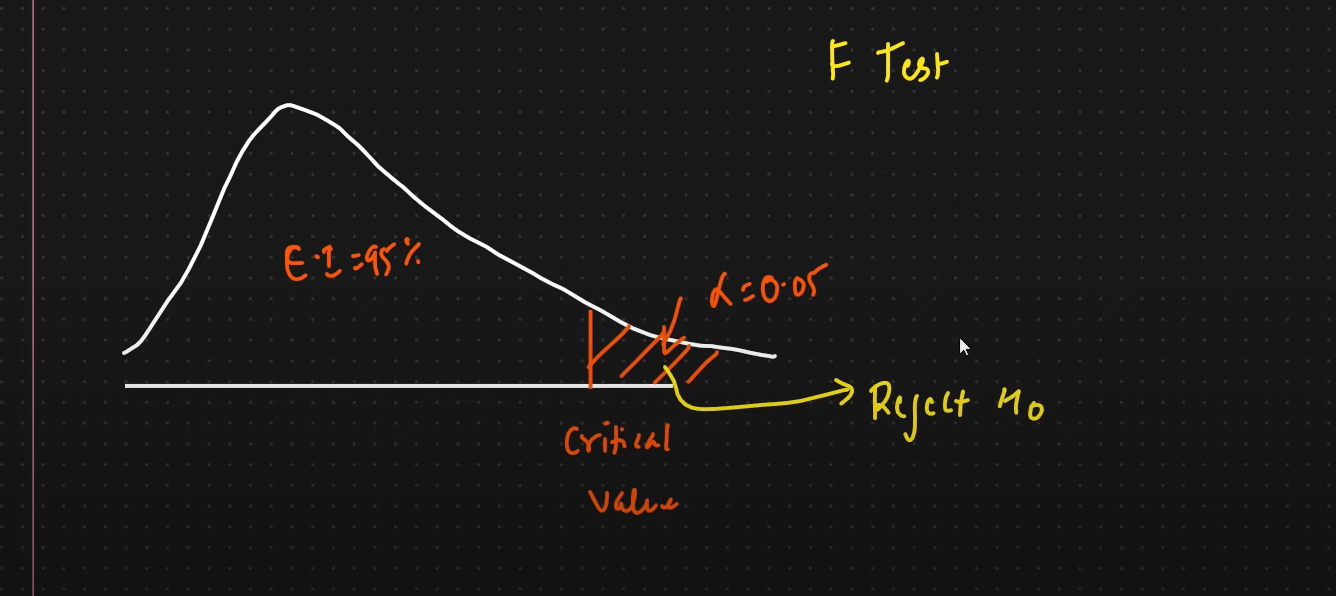 F Test
C.I = 95%
α = 0.05
Reject H0
Critical
Value